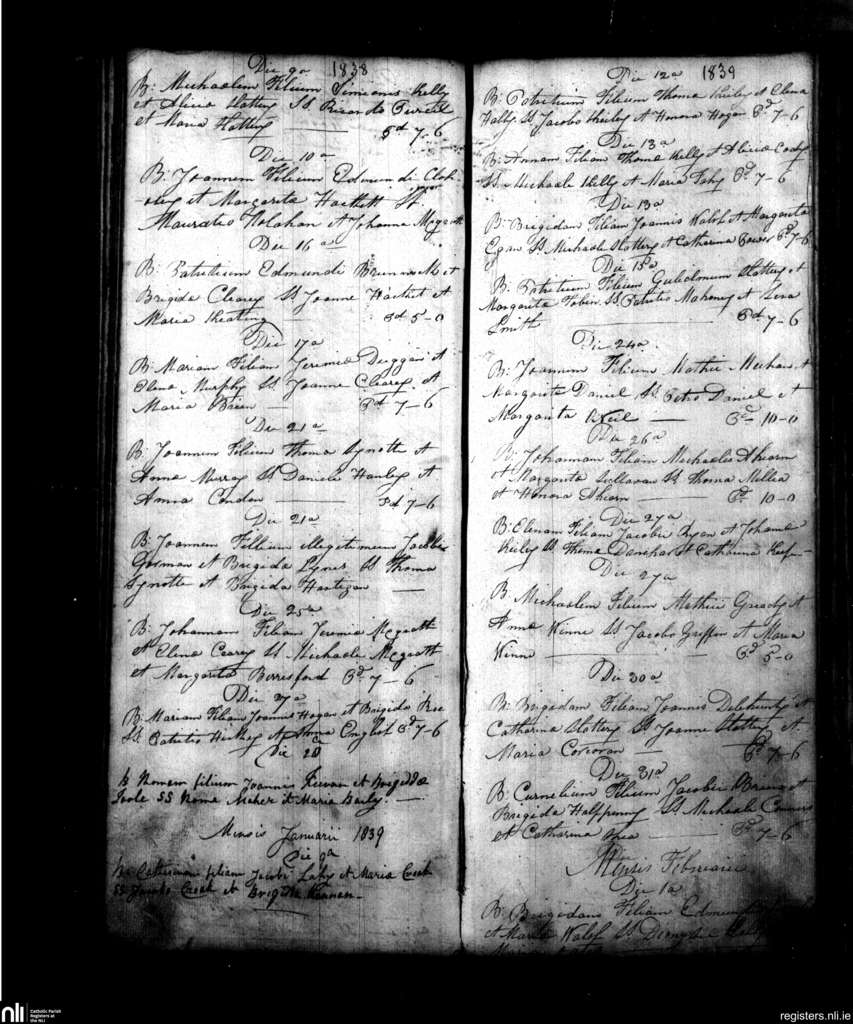 Die 9a 1838
B. Michaelem Filium Simionis Kelly
et Alicia Slattery Ss Ricardo Purcell
et Maria Slattery Pd 7-6
Die 10a
B. Joannem Filium Edmundi
et Margarita Hackett Ss
Mauratio Holahan et Johanna
Die 16a
B. Patritium Edmundi et
Brigida Cleary Ss Joanne Hacket et
Maria Keating Pd 5-0
Die 17a
B. Mariam Filiam Jeremia Duggan et
Elena Murphy Ss Joanne Cleary et
Maria Brien Pd 7-6
Die 21a
B. Joannem Filium Thoma Synotte et
Anna Murray Ss Daniele Hanley et
Anna Condon Pd 7-6
Die 21a
B. Joannem Fillium illegitimum Jacobi
Gorman et Brigida Lyner Ss Thoma
Synotte et Brigida Hartigan
Die 25a
B. Johannam Filiam Jeremia
et Elena Ss Michaele
et Margarita Berresford Pd 7-6
Die 27a
B. Mariam Filiam Joannis Hogan et Brigida
Ss Patritio Hickey et Anna English Pd 7-6
Die 28
B Filium Joannis et Brigidæ
Toole SS Maher et Maria Baily
Mensis Januarii 1839
Die 9a
filiam Jacobi Lahy et Maria
SS Jacobo et Brigida
Die 12a 1839
B. Patritium Filium Thoma et Elena
Hally Ss Jacobo et Honora Hogan Pd 7-6
Die 13a
B. Annam Filiam Thoma Kelly et Alicia Cody
Ss Michaele Kelly et Maria Fahy Pd 7-6
Die 13a
B. Brigidam Filiam Joannis Walsh et Margarita
Egan Ss Michaele Slattery et Catharina Power Pd 7-6
Die 15a
B. Patritium Filium Gulielmum Slattery et
Margarita Tobin Ss Patritio Mahoney et
Smith Pd 7-6
Die 24a
B. Joannem Filium Mathie Meehan et
Margarita Daniel Ss Petro Daniel et
Margarita Neil Pd 10-0
Die 26a
B. Johannam Filiam Michaelis Ahearn
et Margarita Sullavan Ss Thoma Millea
et Honora Ahearn Pd 10-0
Die 27a
B. Elenam Filiam Jacobi Ryan et Johanna
Ss Thoma et Catharina
Die 27a
B. Michaelem Filium Mathie Gready et
Anna Winne Ss Jacobo Griffin et Maria
Winne Pd 5-0
Die 30a
B. Brigidam Filiam Joannis Delehunty et
Catharina Slattery Ss Joanne Slattery et
Maria Corcoran Pd 7-6
Die 31a
B. Curnelium Filium Jacobi et
Brigida Halfpenny Ss Michaele
et Catharina Pd 7-6
Mensis Februarii
Die 1a
B. Brigidam Filiam
et Maria Walsh Ss
nli
Catholic Parish
Registers at
the NLI
registers.nli.ie